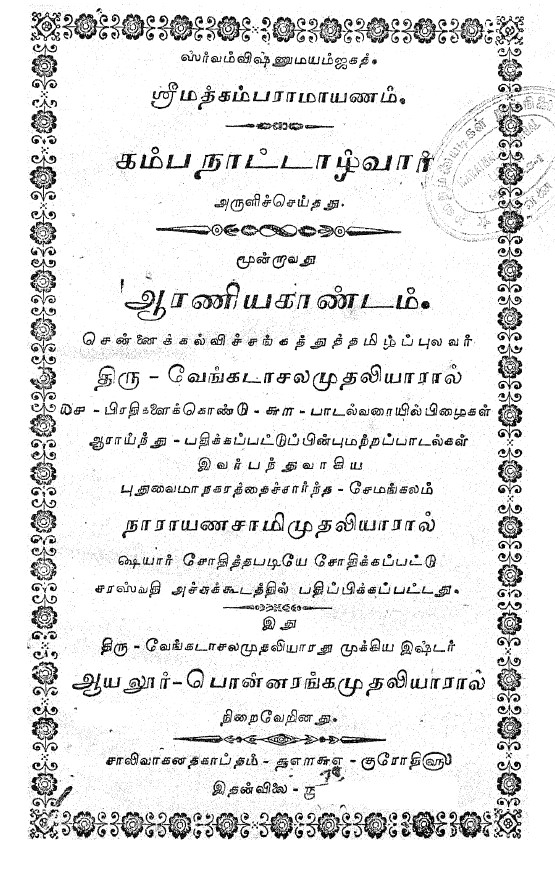 ஸர்வம்விஷ்ணுமயம்ஜகத்.
ஸ்ரீமத்கம்பராமாயணம்.
கம்பநாட்டாழ்வார்
அருளிச்செய்தது.
மூன்றாவது
ஆரணியகாண்டம்.
சென்னைக்கல்விச்சங்கத்துத்தமிழ்ப்புலவர்
திரு - வேங்கடாசலமுதலியாரால்
பிரதிகளைக்கொண்டு - பாடல்வரையில்பிழைகள்
ஆராய்ந்து - பதிக்கப்பட்டுப்பின்புமற்றப்பாடல்கள்
இவர்பந்துவாகிய
புதுவைமாநகரத்தைச்சார்ந்த - சேமங்கலம்
நாராயணசாமிமுதலியாரால்
ஷையார் சோதித்தபடியே சோதிக்கப்பட்டு
சரஸ்வதி அச்சுக்கூடத்தில் பதிப்பிக்கப்பட்டது.
இது
திரு - வேங்கடாசலமுதலியாரது முக்கிய இஷ்டர்
ஆயலூர் - பொன்னரங்கமுதலியாரால்
நிறைவேறினது.
சாலிவாகனசகாப்தம் - குரோதி௵
இதன்விலை - ௩